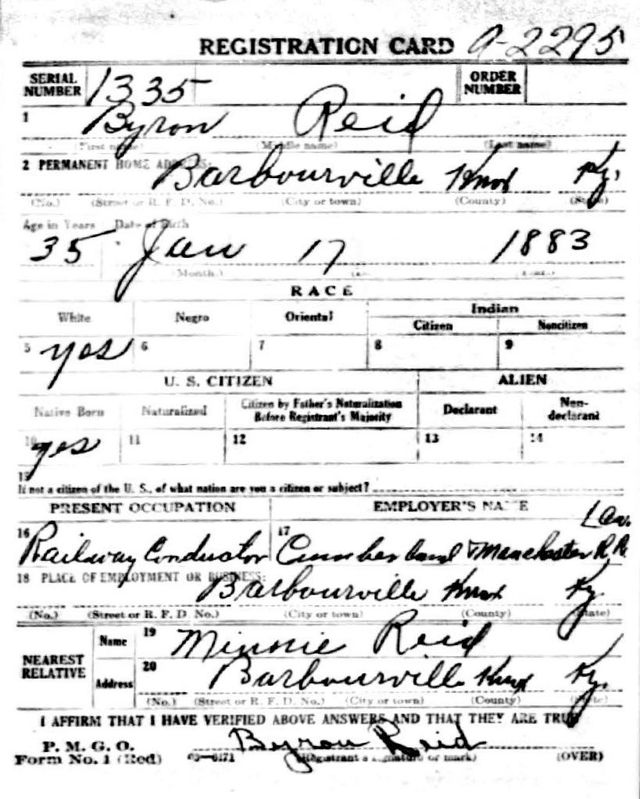 REGISTRATION CARD A-2295
SERIAL NUMBER 1335 ORDER NUMBER
1 Byron Reid
(First name) (Middle name) (Last name)
2 PERMANENT HOME ADDRESS:
Barbourville Knox Ky.
(No.) (Street or R. F. D. No.) (City or town) (County) (State)
Age in Years Date of Birth
35 Jan 17 1883
(Month.)
RACE
White Negro Oriental Indian
Citizen Noncitizen
5 yes 6 7 8 9
U. S. CITIZEN ALIEN
Native Born Naturalized Citizen by Father's Naturalization Before Registrant's Majority Declarant Non-declarant
10 yes 11 12 13 14
15
If not a citizen of the U. S., of what nation are you a citizen or subject?
PRESENT OCCUPATION EMPLOYER'S NAME
16 Railway Conductor 17 Cumberland & Manchester R R
18 PLACE OF EMPLOYMENT OR BUSINESS:
Barbourville Knox Ky.
(No.) (Street or R. F. D. No.) (City or town) (County) (State)
NEAREST RELATIVE
Name 19 Minnie Reid
Address 20 Barbourville Knox Ky.
(No.) (Street or R. F. D. No.) (City or town) (County) (State)
I AFFIRM THAT I HAVE VERIFIED ABOVE ANSWERS AND THAT THEY ARE TRUE
P. M. G. O.
Form No. 1 (Red) 03-6171 Byron Reid
(Registrant's signature or mark) (OVER)